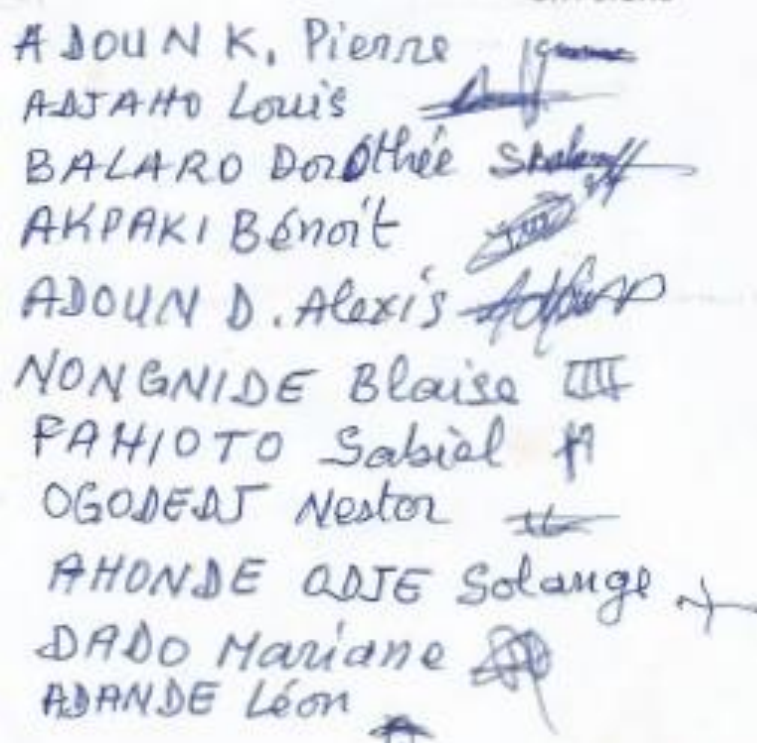 ADOUN K. Pierre
ADJAHO Louis
BALARO Dorothée
AKPAKI Bénoît
ADOUN D. Alexis
NONGNIDE Blaise
FAHIOTO Sabiel
OGODEDJ Nestor
AHONDE ODJE Solange
DADO Mariane
ADANDE Léon